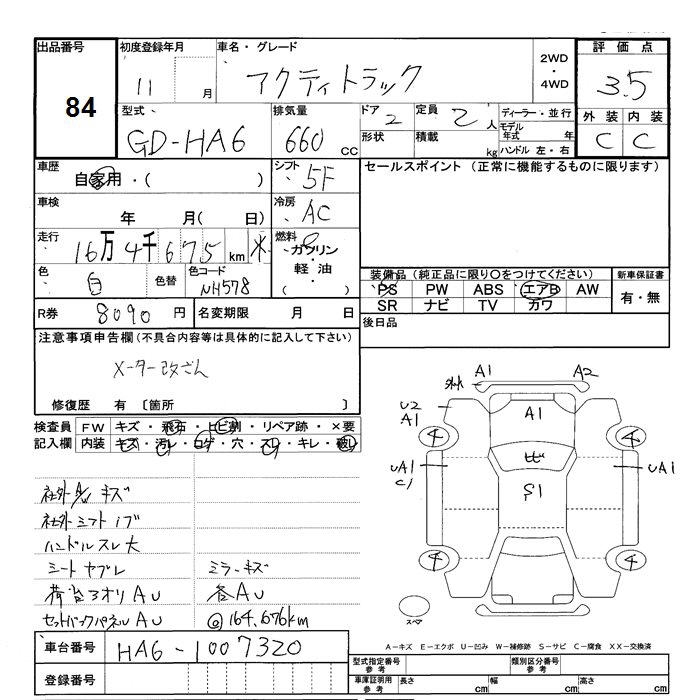 出品番号 84
初度登録年月 11 月
車名・グレード アクティトラック
2WD・4WD
評価点 3.5
型式 GD-HA6
排気量 660 cc
ドア 2 形状
定員 2 人 積載 kg
ディーラー・並行
モデル年式 年
ハンドル 左・右
外装 C 内装 C
車歴 自家用・( )
シフト 5F
セールスポイント (正常に機能するものに限ります)
車検 年 月( 日)
冷房 AC
走行 16万4千675km
燃料 ガソリン・軽油・( )
色 白 色替 色コード NH578
装備品(純正品に限り○をつけてください)
PS PW ABS エアB AW
SR ナビ TV カワ
新車保証書 有・無
R券 8090 円
名変期限 月 日
後日品
注意事項申告欄(不具合内容等は具体的に記入して下さい)
メーター改ざん
修復歴 有〔箇所 〕
検査員記入欄
FW キズ・飛石・ヒビ割・リペア跡・×要
内装 キズ・汚レ・コゲ・穴・スレ・キレ・破レ
キズ
ハンドルスレ大
シートヤブレ
ミラーキズ
荷台アオリAU
各AU
セットバックパネルAU
@164,676km
A1
A2
U2
A1
A1
ヒビ
S1
UA1
C1
UA1
4
4
4
4
スペア
A-キズ E-エクボ U-凹み W-補修跡 S-サビ C-腐食 XX-交換済
車台番号 HA6-1007320
登録番号
型式指定番号 参考
類別区分番号 参考
車庫証明用 参考 長さ cm 幅 cm 高さ cm